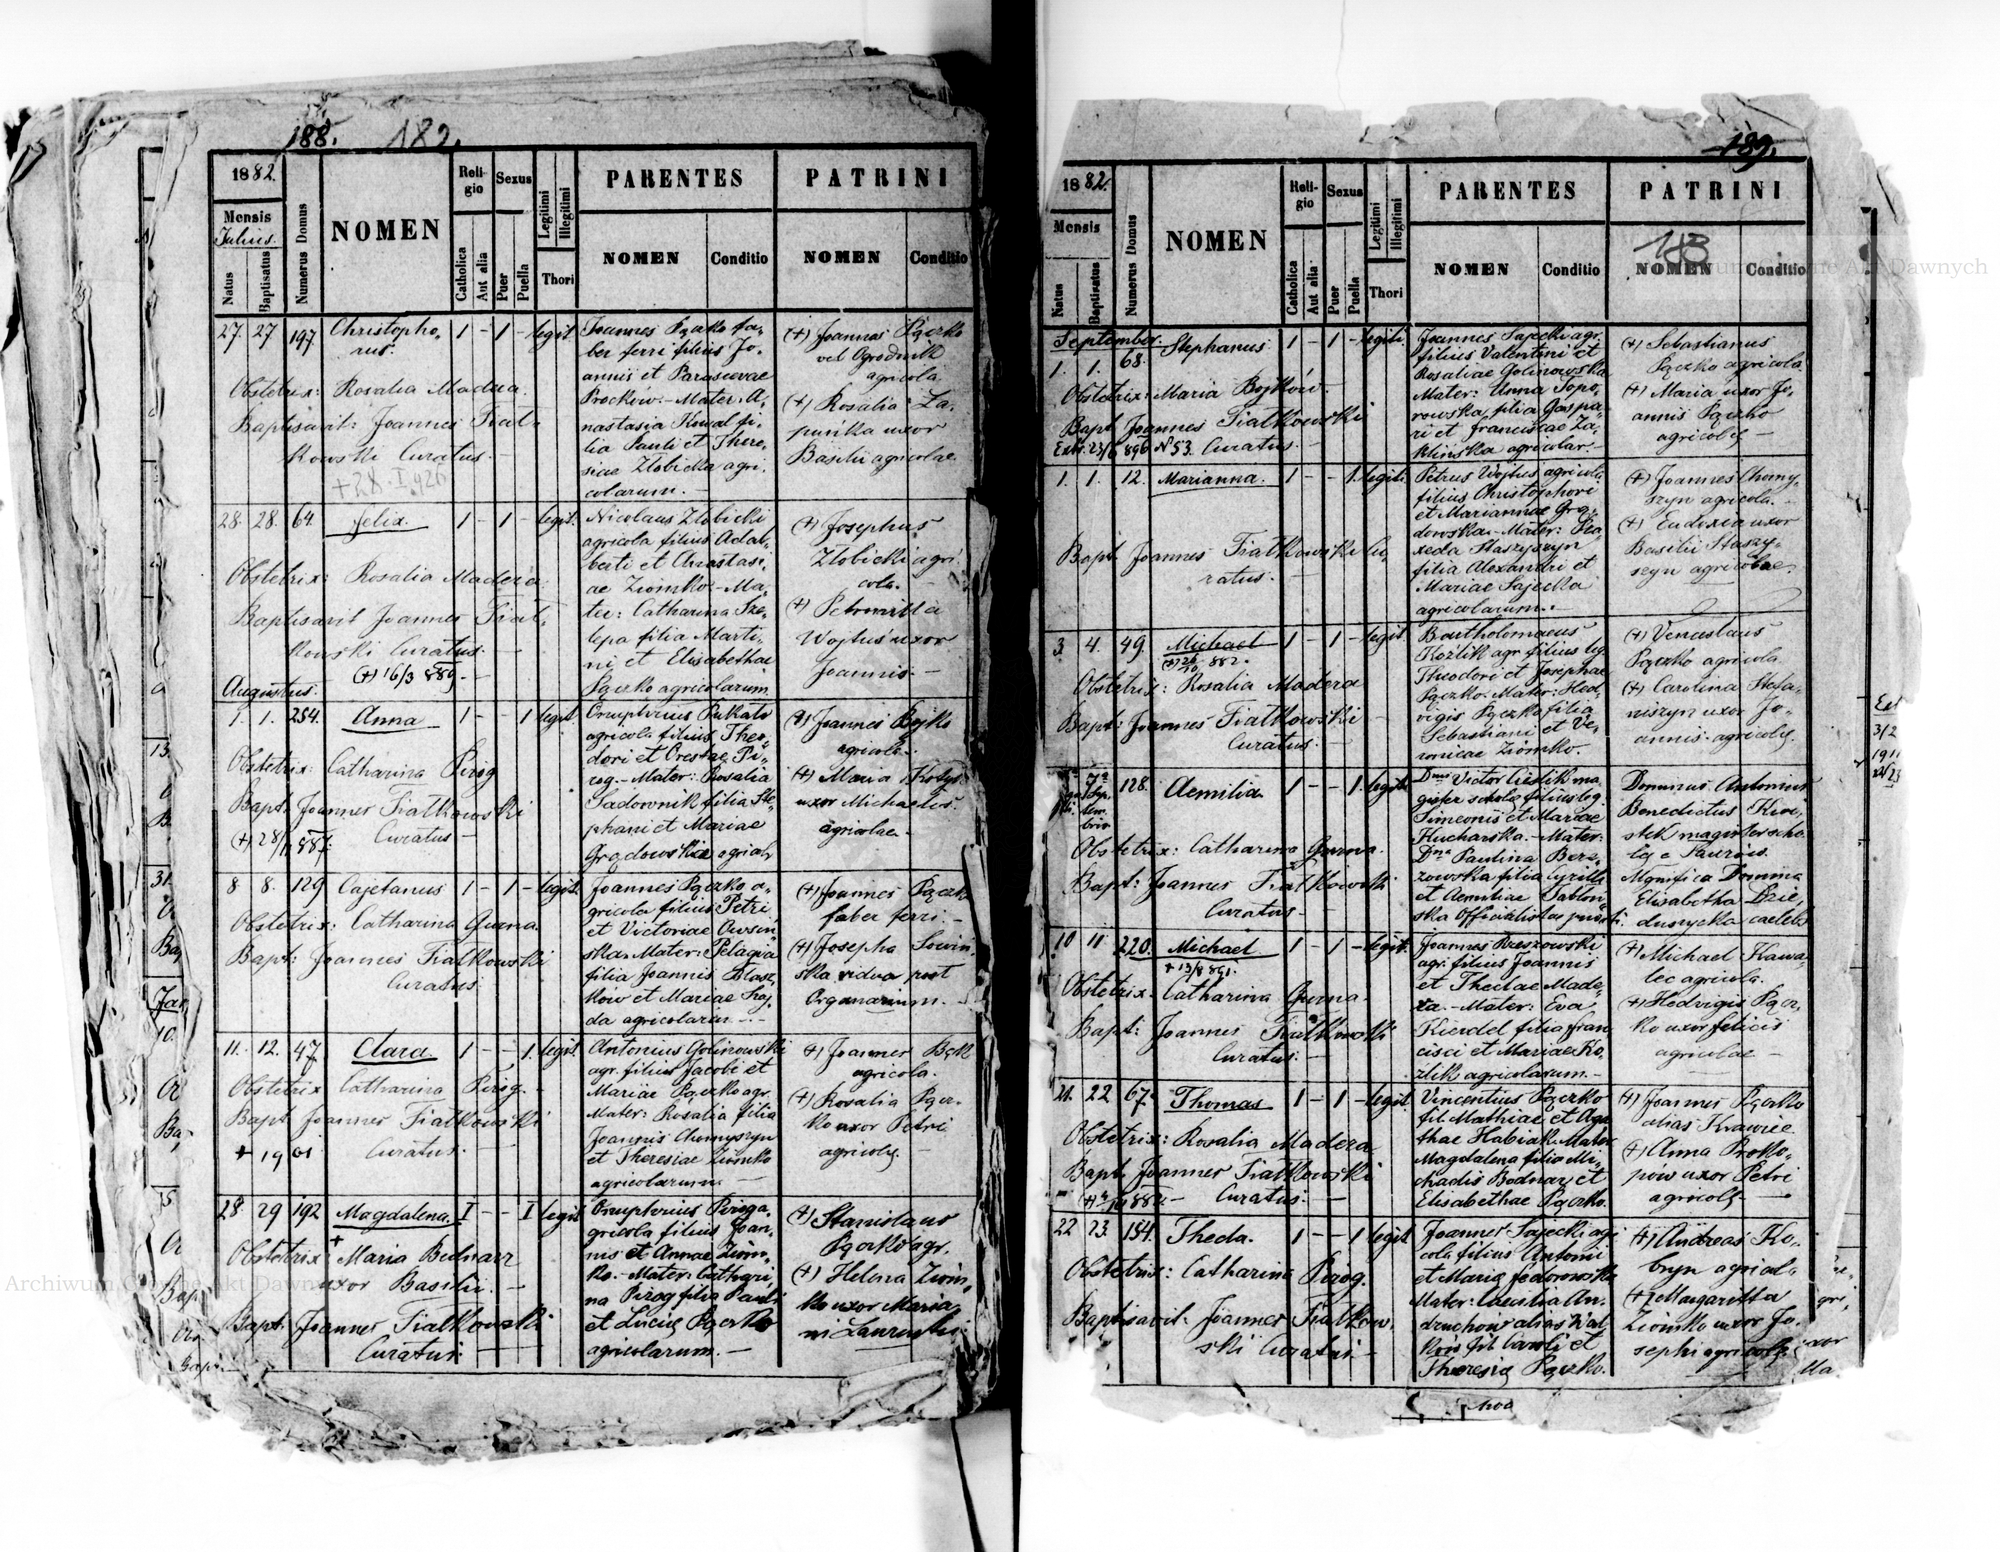 188. 182.
1882.
Mensis
Julius.
Natus
Baptisatus
Numerus Domus
NOMEN
Reli-
gio
Catholica
Aut alia
Sexus
Puer
Puella
Legitimi
Illegitimi
Thori
PARENTES
NOMEN
Conditio
PATRINI
NOMEN
Conditio
27. 27 197 Christopho-
rus.
1 - 1 - legit.
Obstetrix: Rosalia Madera.
Baptisavit: Joannes Fiał-
kowski Curatus. -
+28.I.926
Joannes Pączko fa-
ber ferri filius Jo-
annis et Parascevae
Prockiw. - Mater: A-
nastasia Kowal fi-
lia Pauli et There-
siae Złobicka agri-
colarum. -
(+) Joannes Pączko
vel Ogrodnik
agricola
(+) Rosalia
uxor
Basilii agricolae.
28. 28. 64. Felix. 1 - 1 - legit.
Obstetrix: Rosalia Madera
Baptisavit Joannes Fiał-
kowski Curatus. -
(+) 16/3 889. -
Nicolaus Złobicki
agricola filius Adal-
berti et Anastasi-
ae Ziomko. - Ma-
ter: Catharina Sze-
lepa filia Marti-
ni et Elisabethae
Pączko agricolarum
(+) Josephus
Złobicki agri-
cola. -
(+) Petronilla
Wojtuś uxor
Joannis. -
Augustus.
1. 1. 254. Anna 1 - - 1 legit.
Obstetrix: Catharina Pirog
Bapt. Joannes Fiałkowski
Curatus -
(+) 28/ 887.
Onuphrius Pukało
agricola filius Theo-
dori et Orestae Pi-
rog. - Mater: Rosalia
Sadorovnik filia Ste-
phani et Mariae
Grądowskie agricol.
(+) Joannes Bojko
agricola. -
(+) Maria
uxor Michaelis
agricolae -
8. 8. 129 Cajetanus 1 - 1 - legit.
Obstetrix: Catharina Gurna.
Bapt: Joannes Fiałkowski
Curatus
Joannes Pączko a-
gricola filius Petri
et Victoriae Owsin-
ska. Mater: Pelagia
filia Joannis Błasz-
kow et Mariae
agricolarum -
(+) Joannes Pączko
faber ferri. -
(+) Josepha Sowin-
ska vidua post
Organarium. -
11. 12. 47. Clara. 1 - - 1. legit.
Obstetrix Catharina Pirog. -
Bapt Joannes Fiałkowski
Curatus. -
+ 1901
Antonius Golinowski
agr. filius Jacobi et
Mariae Pączko agr.
Mater: Rosalia filia
Joannis Chomyszyn
et Theresiae Ziomko
agricolarum -
(+) Joannes Bąk
agricola.
(+) Rosalia Pącz-
ko uxor Petri
agricolę -
28. 29 192 Magdalena. I - - I legit
Obstetrix: Maria Bednarz
uxor Basilii. -
Bapt. Joannes Fiałkowski
Curatus. -
Onuphrius Piroga
agricola filius Joan-
nis et Annae Ziom-
ko. - Mater: Cathari-
na Pirog filia Pauli
et Lucię Pączko
agricolarum. -
(+) Stanislaus
Pączko agr.
(+) Helena Ziom-
ko uxor Maria-
ni Laurentii
189.
1882.
Mensis
Natus
Baptisatus
Numerus Domus
NOMEN
Reli-
gio
Catholica
Aut alia
Sexus
Puer
Puella
Legitimi
Illegitimi
Thori
PARENTES
NOMEN
Conditio
PATRINI
183
NOMEN
Conditio
September.
1. 1. 68. Stephanus 1 - 1 - legiti.
Obstetrix: Maria Bojków -
Bapt. Joannes Fiałkowski
Extr. 23/6 896 N 53. Curatus. -
Joannes Sajecki agr.
filius Valentini et
Rosaliae Golinowska
Mater: Anna Topo-
rowska, filia Gaspa-
ri et Franciscae Za-
klinska agricolar. -
(+) Sebastianus
Pączko agricola
(+) Maria uxor Jo-
annis Pączko
agricolę -
1. 1. 12. Marianna. 1 - - 1. legiti.
Bapt. Joannes Fiałkowski Cu-
ratus. -
Petrus Wojtuś agricola
filius Christophori
et Mariannae Grą-
dowska. - Mater: Pra-
xeda Staszyszyn
filia Alexandri et
Mariae Sajecka
agricolarum. -
(+) Joannes Chomy-
szyn agricola. -
(+) Eudoxia uxor
Basilii Staszy-
szyn agricolae.
3 4. 49. Michael 1 - 1 - legit.
(+) 26/10 882.
Obstetrix: Rosalia Madera
Bapt: Joannes Fiałkowski -
Curatus. -
Bartholomaeus
Koźlik agr. filius leg.
Theodori et Josephae
Pączko. Mater: Hed-
vigis Pączko filia
Sebastiani et Ve-
ronicae Ziomko.
(+) Venceslaus
Pączko agricola
(+) Carolina Stefa-
niszyn uxor Jo-
annis agricolę
128. Aemilia. 1 - - 1. legit.
Obstetrix: Catharina Gurna.
Bapt: Joannes Fiałkowski
Curatus -
Dnus Victor Cieślik ma-
gister scholę filius leg.
Simeonis et Mariae
Kucharska. - Mater:
Dna Paulina Borz-
zowska filia Cyrilli
et Aemiliae Jablon-
ska Officialistae
Dominus Antonius
Benedictus
magister scho-
lę e Laurów.
Mgnifica Domina
Elisabetha Dzie-
duszycka caelebs
10 11 220. Michael 1 - 1 - legit.
+ 13/8 891.
Obstetrix. Catharina Gurna
Bapt: Joannes Fiałkowski
Curatus. -
Joannes Brzezowski
agr. filius Joannis
et Theclae Made-
ra. - Mater: Eva
Kierdel filia Fran-
cisci et Mariae Ko-
zlik agricolarum. -
(+) Michael Kawa-
lec agricola.
(+) Hedvigis Pącz-
ko uxor Felicis
agricolae -
21. 22 67. Thomas 1 - 1 - legit.
Obstetrix: Rosalia Madera
Bapt. Joannes Fiałkowski
Curatus. -
Vincentius Pączko
fil. Mathiae et Aga-
thae Habiak. Mater
Magdalena filia Mi-
chaelis Bodnar et
Elisabethae Pączko.
(+) Joannes Pączko
alias Krawiec
(+) Anna Proko-
pów uxor Petri
agricolę -
22 23. 154. Thecla. 1 - - 1 legit.
Obstetrix: Catharina Pirog.
Baptisavit: Joannes Fiałkow-
ski Curatus. -
Joannes Sajecki agri-
cola filius Antonii
et Marię Fedorowska
Mater: Caecilia An-
druchow alias Wał-
kow fil. Caroli et
Theresię Pączko.
(+) Andreas Ko-
agricol-
(+) Margaretta
Ziomko uxor Jo-
sephi agricolę
Archiwum Główne Akt Dawnych
Archiwum Główne Akt Dawnych